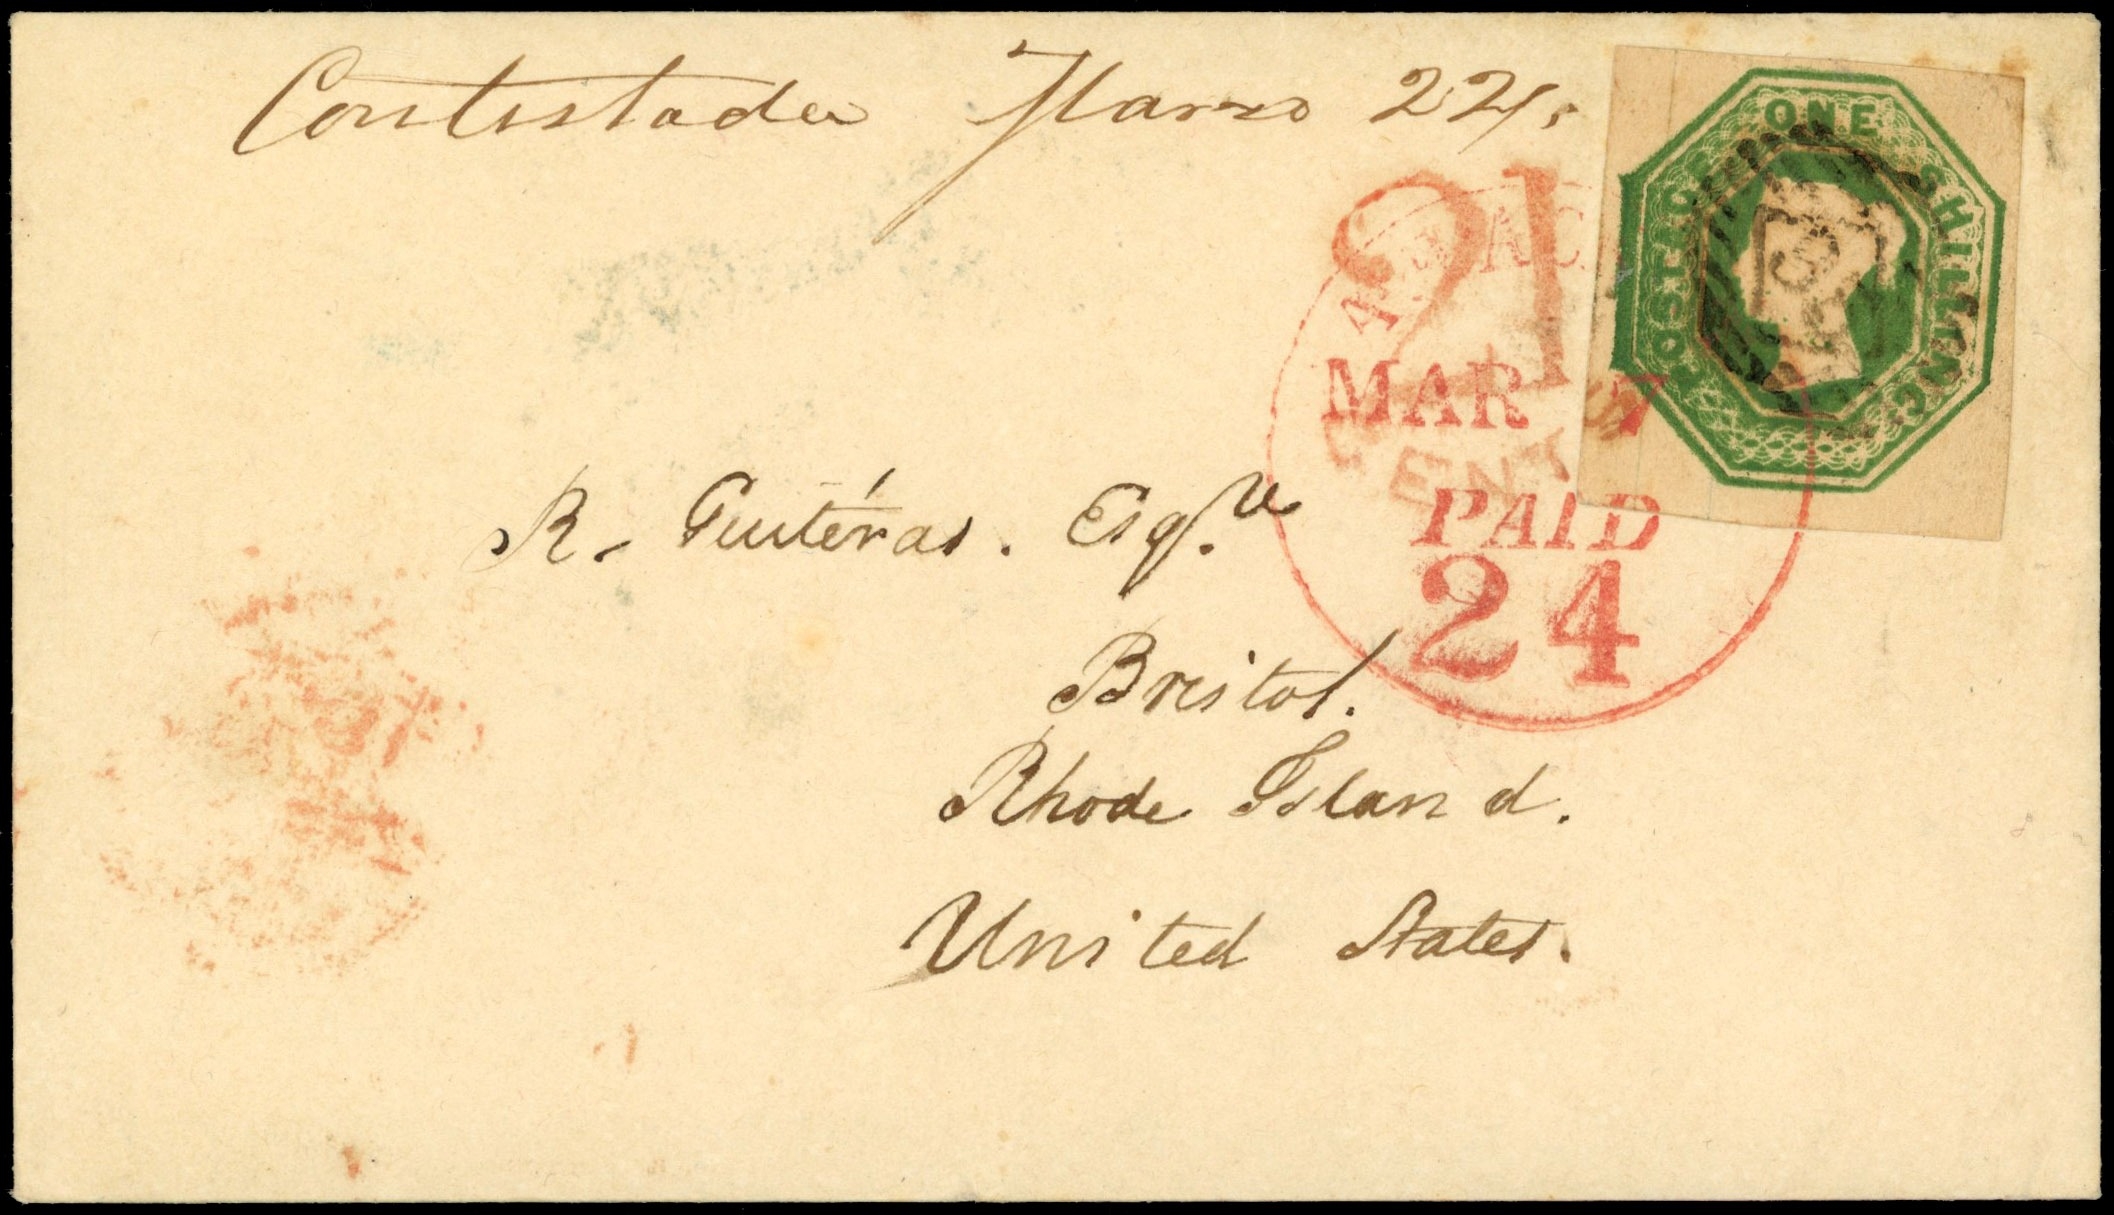 Contestada Marzo 22/.
POSTAGE ONE SHILLING
21
CENTS
MAR 7
PAID
24
R. Guitéras. Esq.re
Bristol.
Rhode Island.
United States.